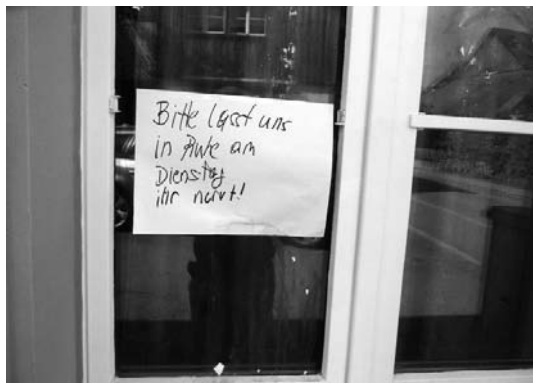 Bitte lasst uns
in Ruhe am
Dienstag
ihr nervt!